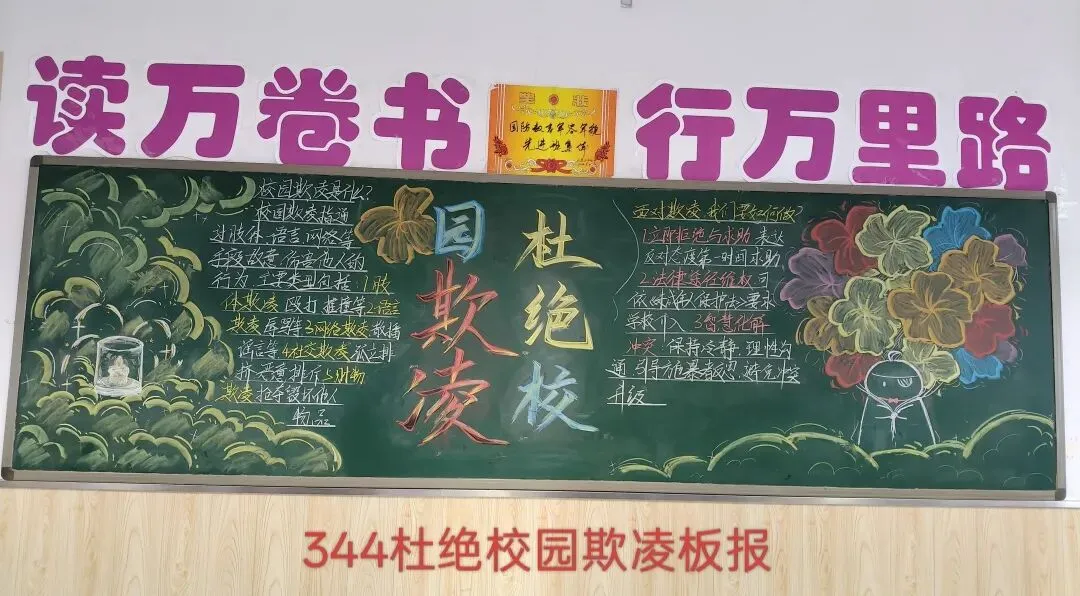 读万卷书
奖状
国防教育军容军貌
先进班集体
行万里路
校园欺凌是什么?
校园欺凌指通
对肢体、语言、网络等
手段故意伤害他人的
行为 主要类型包括:1.肢
体欺凌 殴打 推搡等2.语言
欺凌 辱骂等3.网络欺凌 散播
谣言等4.社交欺凌 孤立排
并 恶意排斥5.财物
欺凌 抢夺毁坏他人
物品
杜绝校
园欺凌
面对欺凌,我们要如何做?
1.立即拒绝与求助 表达
反对态度第一时间求助
2.法律途径维权 可
依《未成年人保护法》要求
学校介入 3.智慧化解
冲突 保持冷静 理性沟
通 引导施暴者反思,避免冲突
升级
344杜绝校园欺凌板报